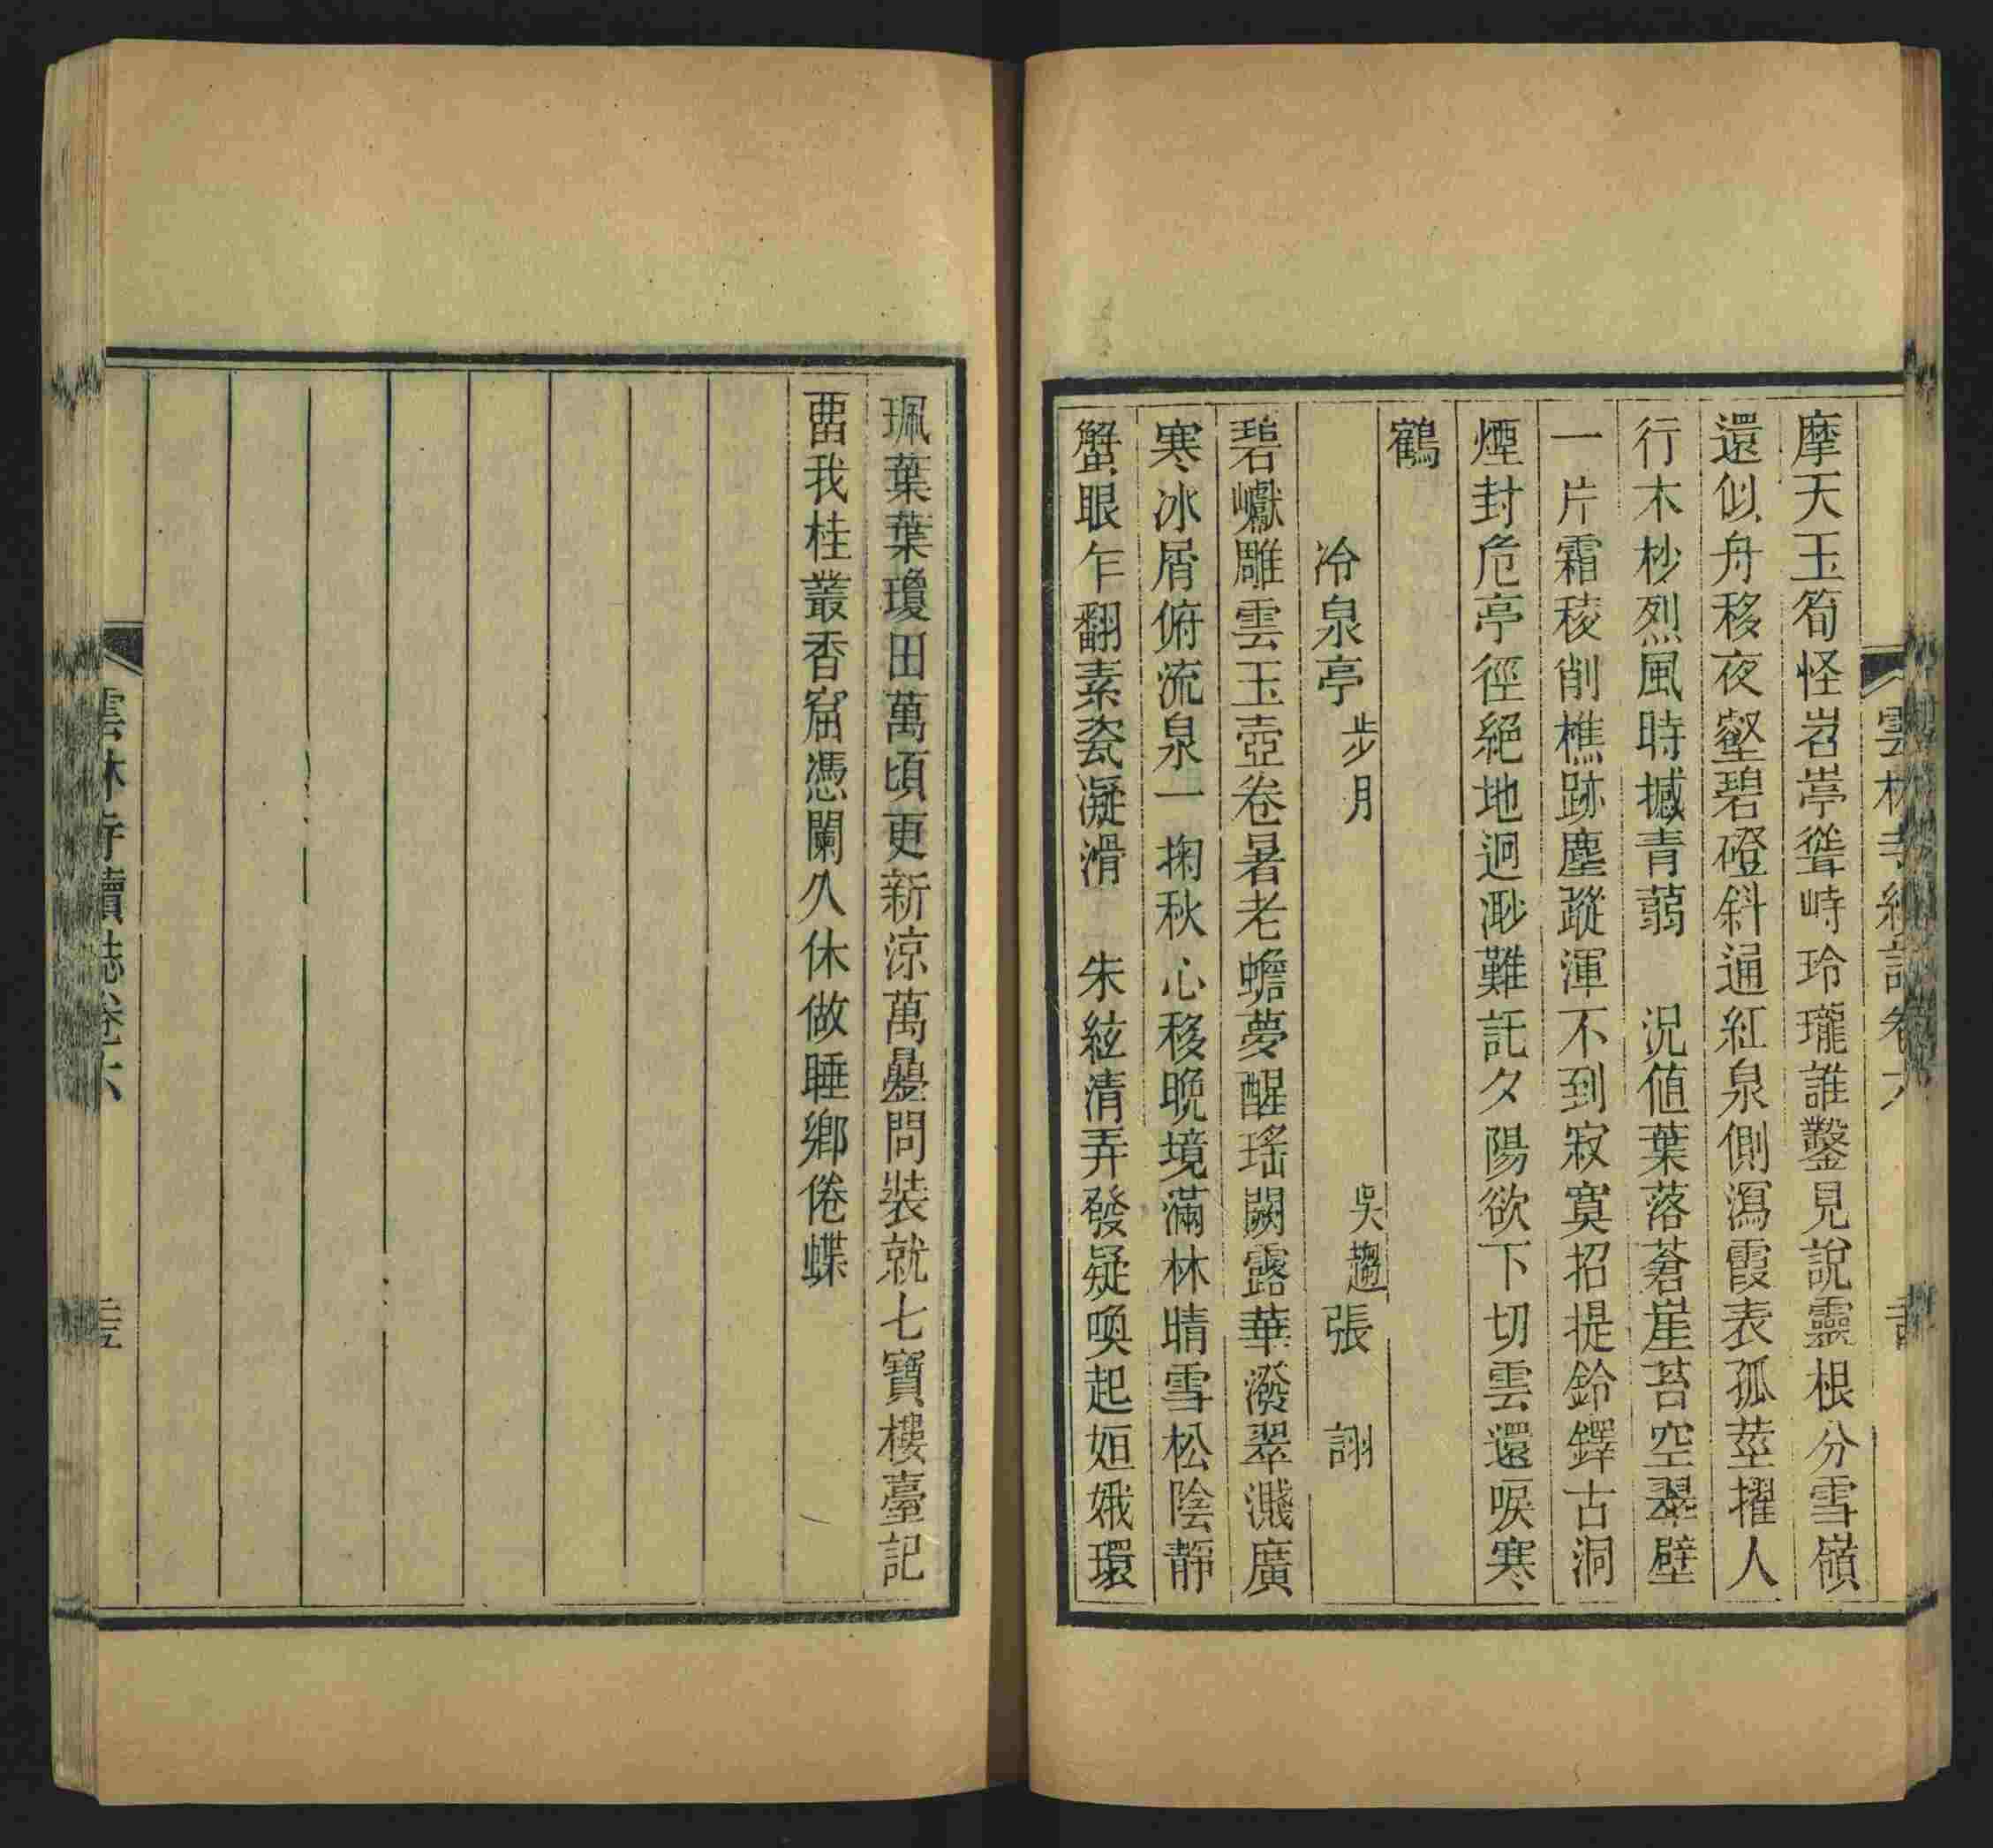 摩天玉筍怪岩亭聳峙玲瓏誰鑿見說靈根分雪嶺
還似舟移夜壑碧磴斜通紅泉側瀉霞表孤莖擢人
行木杪烈風時撼青蒻　況値葉落蒼崖苔空翠壁
一片霜稜削樵跡塵蹤渾不到寂寞招提鈴鐸古洞
煙封危亭徑絕地迥渺難託夕陽欲下切雲還唳寒
鶴
冷泉亭 步月 吳趨 張 詡
碧巘雕雲玉壺卷暑老蟾夢醒瑤闕露華潑翠濺廣
寒冰屑俯流泉一掬秋心移晚境滿林晴雪松陰靜
蟹眼乍翻素瓷凝滑　朱絃清弄發疑喚起姮娥環
珮葉葉瓊田萬頃更新涼萬疊問裝就七寶樓臺記
畱我桂叢香窟憑闌久休做睡鄉倦蝶
雲林寺續誌卷六